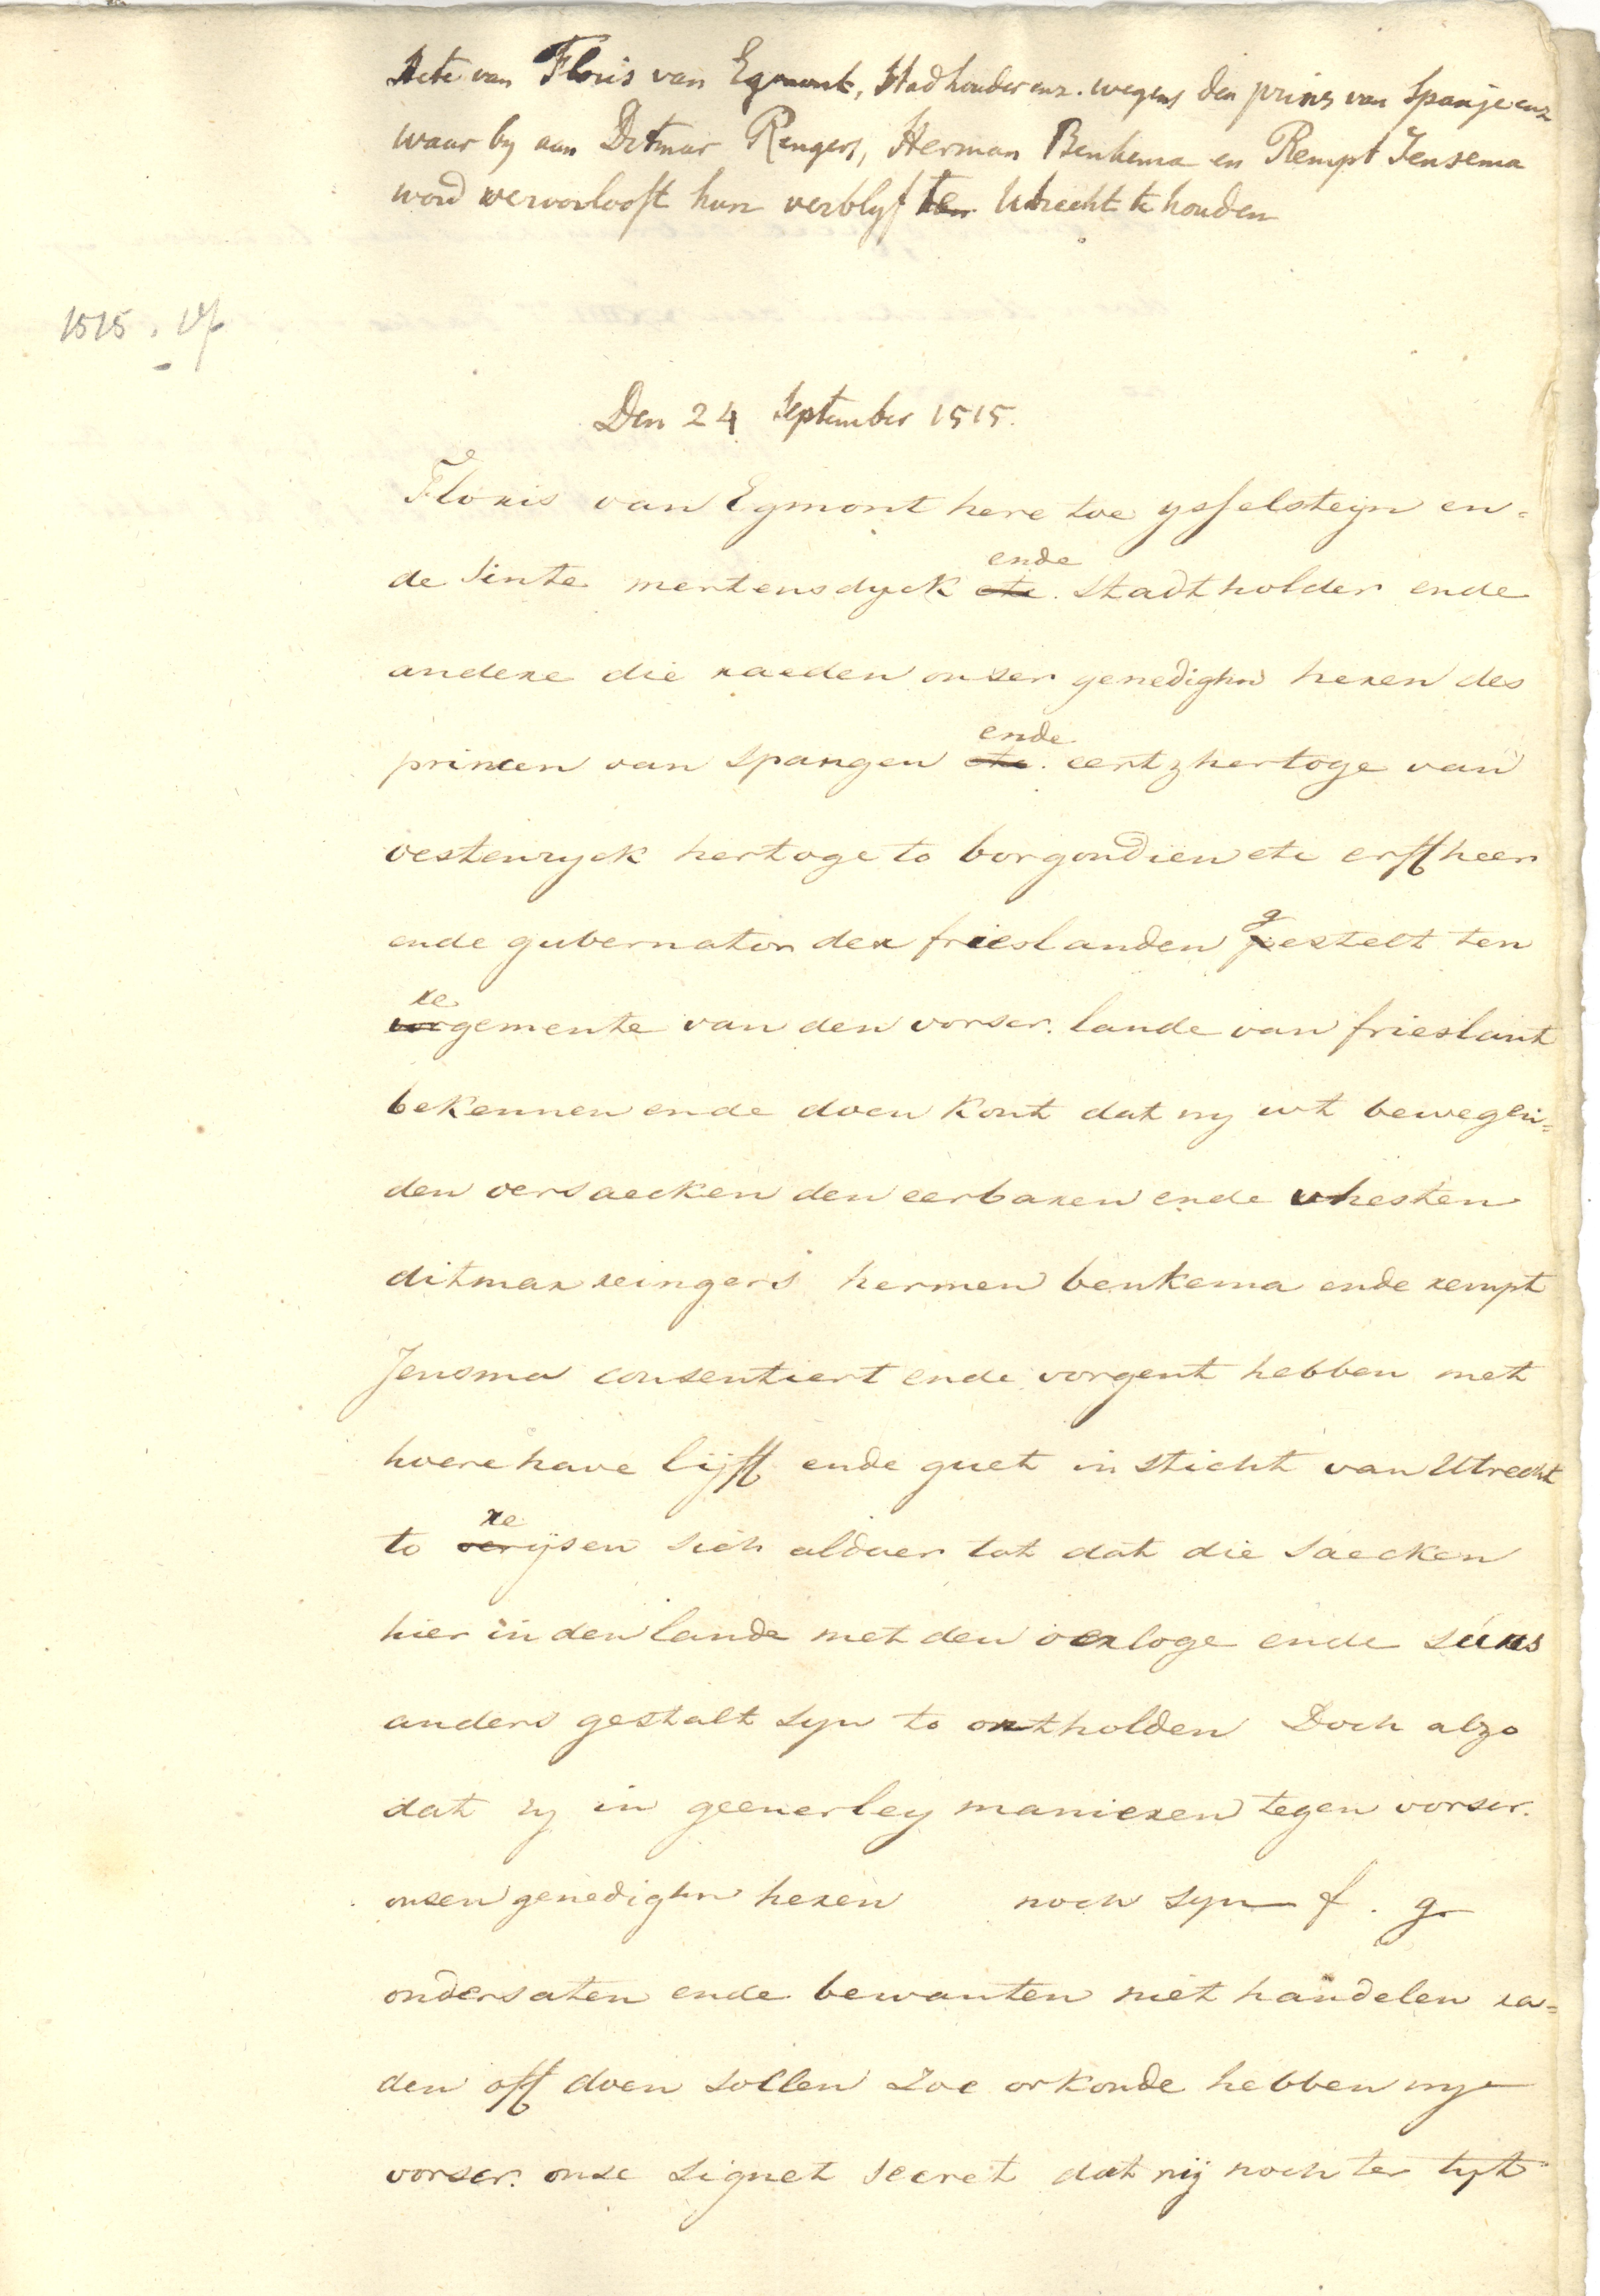 Acte van Floris van Egmont, Stadhouder enz. wegens den prins van Spanje enz
waar by aan Ditmar Rengers, Herman Benkema en Rempt Jensema
word veroorlooft hun verblyf ten Utrecht te houden
1515.
Den 24 September 1515.
Floris van Egmont here toe ysselsteyn en=
de Sinte mertensdyck etc. ende stadtholder ende
andere die raeden onser genedighn heren des
princen van Spangen etc. ende eertzhertoge van
oestenryck hertoge to borgondien etc erffheer
ende gubernator der frieslanden gestelt ten
regemente van den vorscr. lande van frieslant
bekennen ende doen kont dat wy wt bewegen=
den oersaecken den eerbaren ende vhesten
ditmar reingers hermen benkema ende rempt
Jensma consentiert ende vorgent hebben met
hoere have lijff ende guet in sticht van Utrecht
to reijsen sich aldaer tot dat die saecken
hier in den lande met den oerloge ende süns
anders gestalt syn to ontholden Doch alzo
dat zy in geenerley manieren tegen vorscr.
onsen genedighn heren noch syn f. g.
ondersaten ende bewanten niet handelen ra=
den off doen sollen Zoe orkonde hebben wy
vorscr. onse signet secret dat wij noch ter tyt